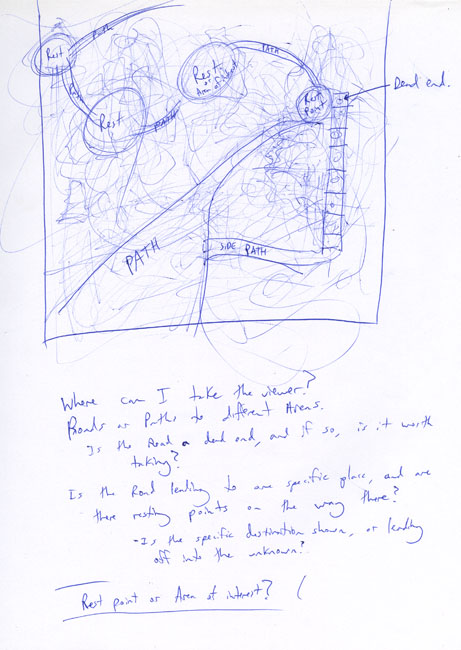 Path
Rest
PATH
Rest
or
Area of interest
Path
Rest
PATH
Rest
Point
Dead end.
PATH
SIDE PATH
Where can I take the viewer?
Roads or Paths to different Areas.
Is the Road a dead end, and if so, is it worth
taking?
Is the Road leading to one specific place, and are
there resting points on the way there?
-Is the specific destination shown, or leading
off into the unknown?
Rest point or Area of interest?